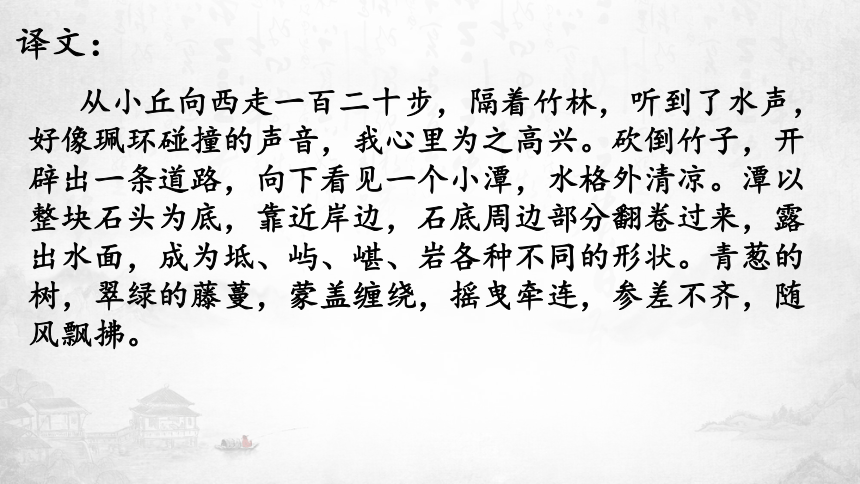 译文：
从小丘向西走一百二十步，隔着竹林，听到了水声，
好像珮环碰撞的声音，我心里为之高兴。砍倒竹子，开
辟出一条道路，向下看见一个小潭，水格外清凉。潭以
整块石头为底，靠近岸边，石底周边部分翻卷过来，露
出水面，成为坻、屿、嵁、岩各种不同的形状。青葱的
树，翠绿的藤蔓，蒙盖缠绕，摇曳牵连，参差不齐，随
风飘拂。